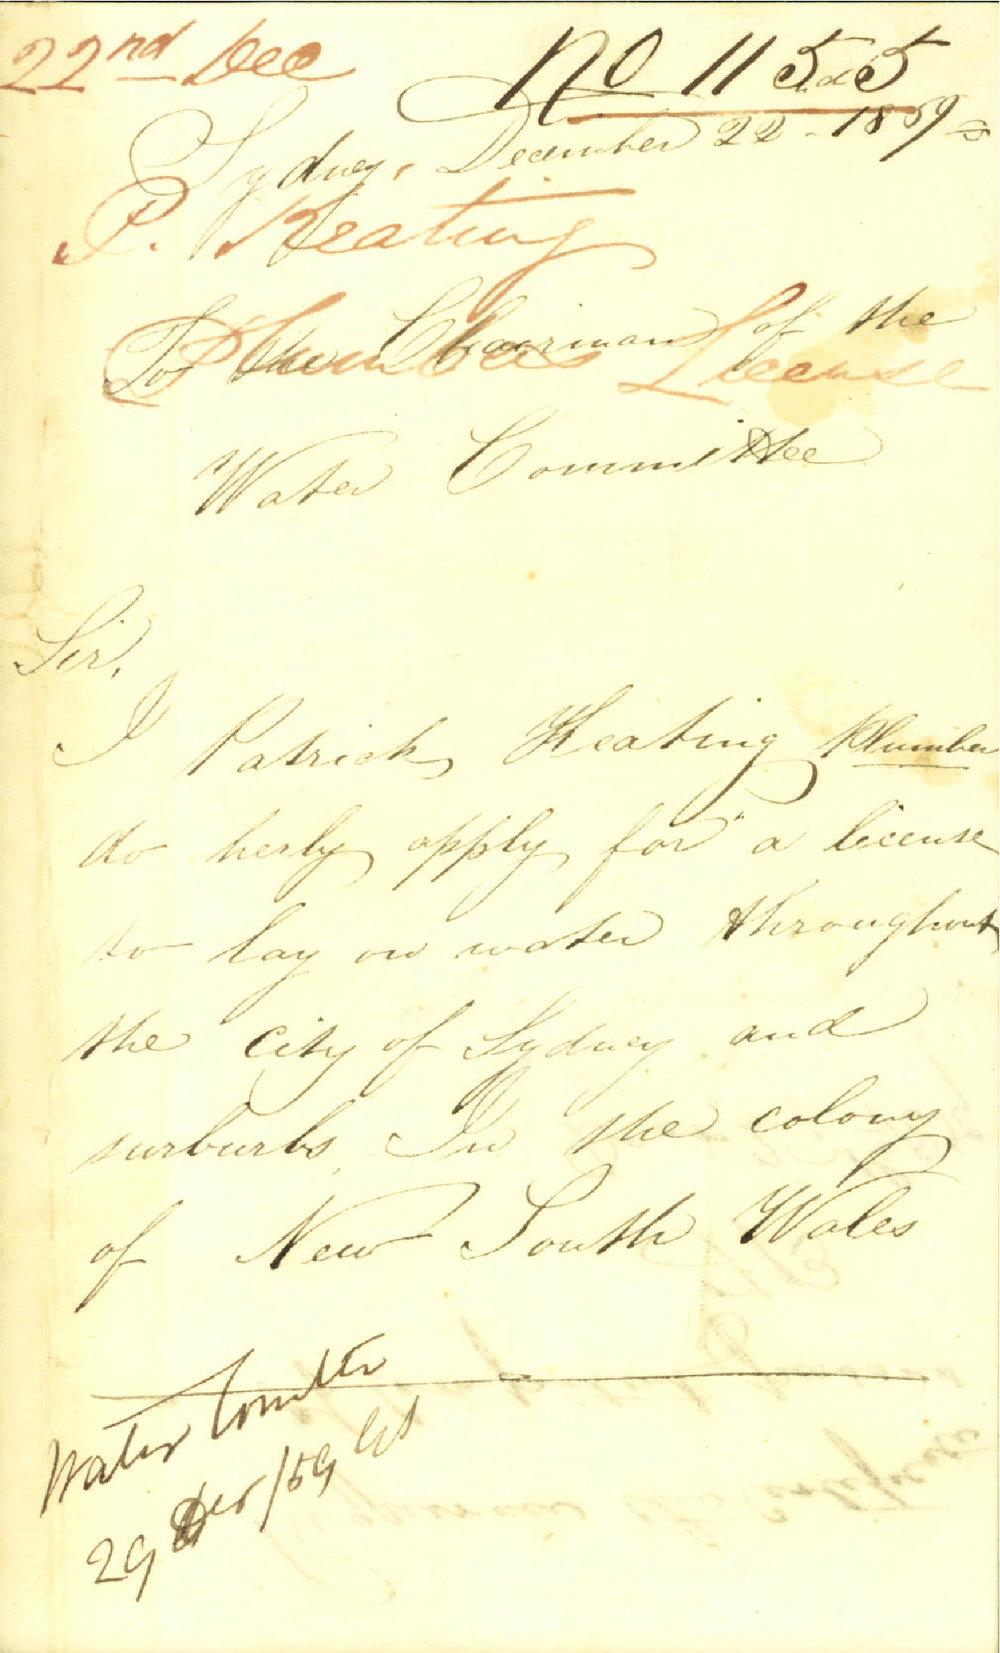 22nd Dec
No 1155
Sydney, December 22 - 1859
P. Keating
Plumbers License
To the Chairman of the
Water Committee
Sir,
I Patrick Keating Plumber
do herby apply for a license
to lay on water throughout
the city of Sydney and
surburbs In the colony
of New South Wales
Water Comtee
29 Dec/59